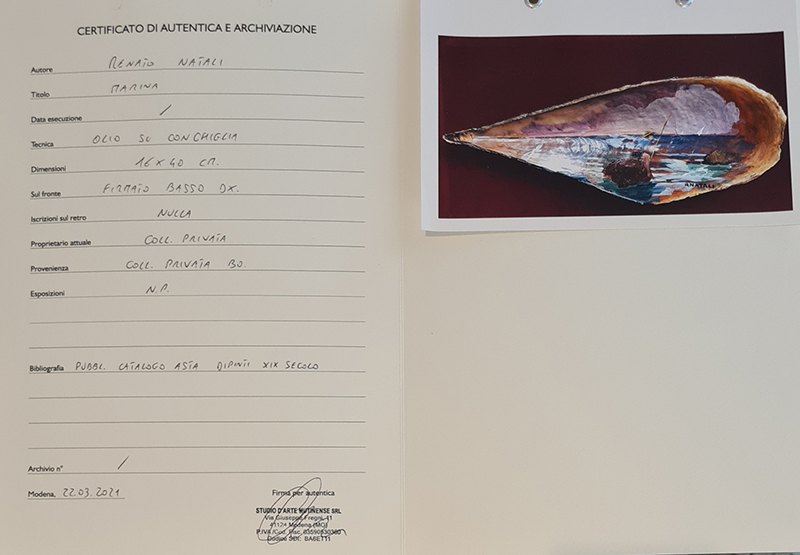 CERTIFICATO DI AUTENTICA E ARCHIVIAZIONE
Autore RENATO NATALI
Titolo MARINA
Data esecuzione /
Tecnica OLIO SU CONCHIGLIA
Dimensioni 16 X 40 CM.
Sul fronte FIRMATO BASSO DX.
Iscrizioni sul retro NULLA
Proprietario attuale COLL. PRIVATA
Provenienza COLL. PRIVATA BO.
Esposizioni N.P.
Bibliografia PUBBL. CATALOGO ASTA DIPINTI XIX SECOLO
Archivio n° /
Modena, 22.03.2021
Firma per autentica
STUDIO D'ARTE MUTINENSE SRL
Via Giuseppe Fregni, 41
41124 Modena (MO)
P.IVA /Cod. Fisc.
Codice SDI: BA6ET11
R.NATALI